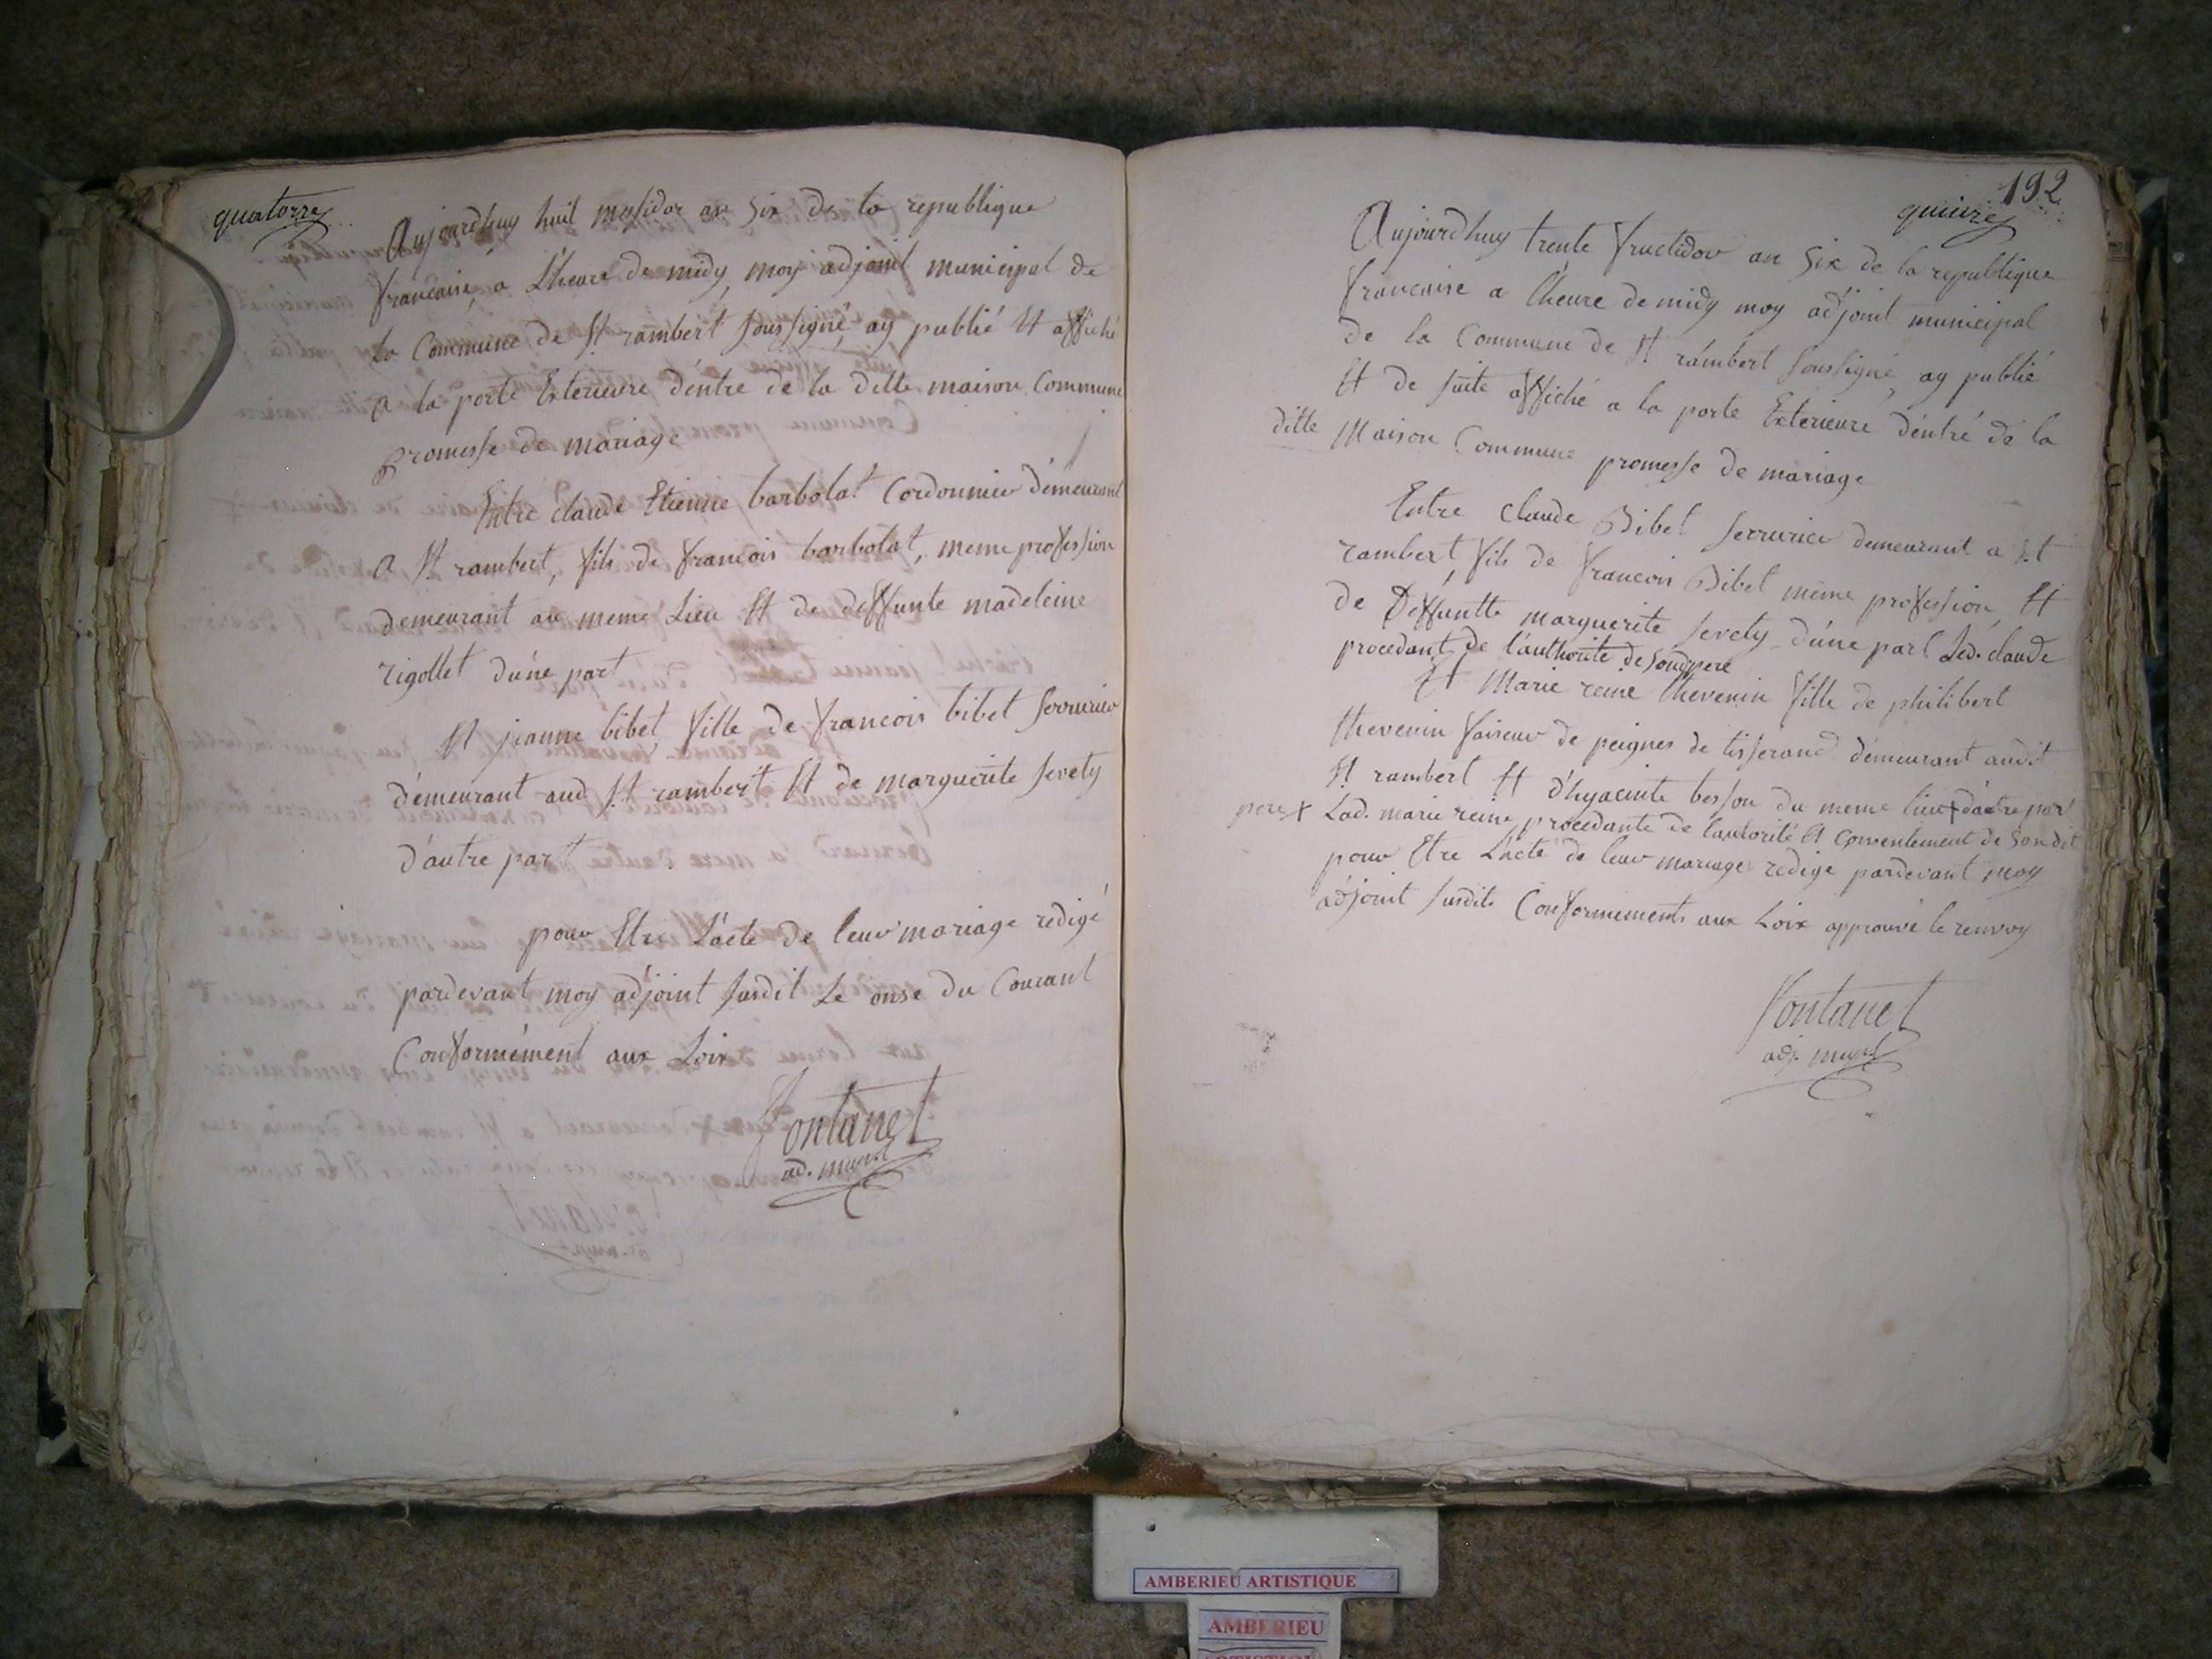 quatorze
Aujourdhuy huit messidor an Six de la republique
francaise, a L'heure de midy, moy adjoint municipal de
la Commune de St rambert soussigné, ay publié Et affiché
a la porte Exterieure d'entre de la ditte maison Commune
promesse de mariage
Entre claude Etienne barbolat Cordonnier demeurant
a St rambert, fils de francois barbolat, meme profession
demeurant au meme Lieu Et de deffunte madeleine
rigollet d'une part
Et jeanne bibet fille de francois bibet serrurier
demeurant aud St rambert Et de marguerite Sevety
d'autre part
pour Etre L'acte de leur mariage redigé
pardevant moy adjoint susdit Le onse du Courant
Conformément aux Loix
fontanet
ad. mupal
192
quinze
Aujourdhuy trente fructidor an Six de la republique
francaise a l'heure de midy moy adjoint municipal
de la Commune de St rambert soussigné, ay publié
Et de suite affiché a la porte Exterieure d'entré de la
ditte Maison Commune promesse de mariage
Entre Claude Bibet serrurier demeurant a St
rambert, fils de francois Bibet même profession Et
de Deffuntte marguerite Sevety d'une part Led. claude
procedant de l'authorité de son pere
Et Marie reine thevenin fille de philibert
thevenin faiseur de peignes de tisserand demeurant audit
St rambert Et d'hyacinte besson du meme lieu + d'autre part
pere + Lad. marie reine procedante de l'autorité Et Consentement de Son dit
pour Etre L'acte de leur mariage redige pardevant moy
adjoint susdits Conformements aux Loix approuvé le renvoy
fontanet
adj. mupal
AMBERIEU ARTISTIQUE
AMBERIEU
ARTISTIQUE